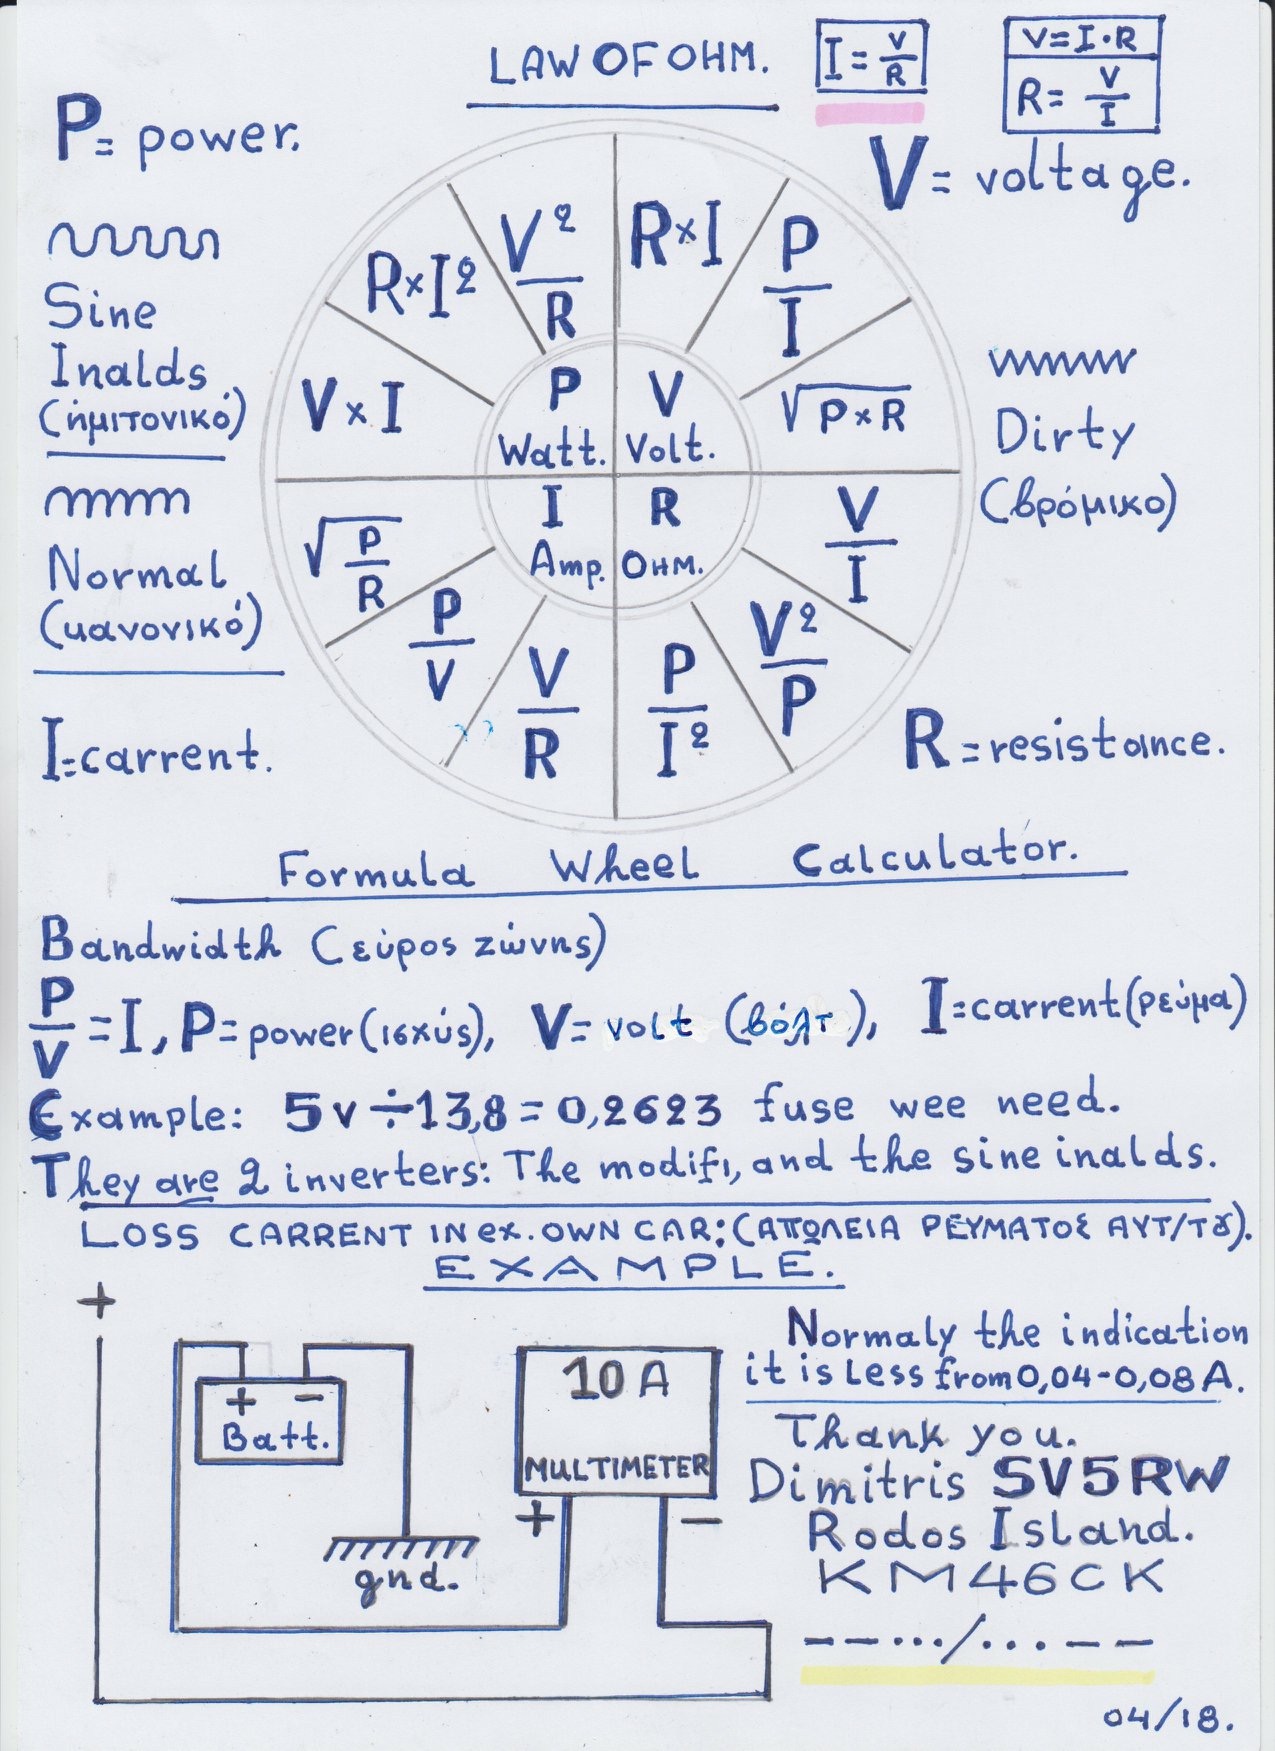 LAW OF OHM.
I = V/R
V = I·R
R = V/I
P = power.
V = voltage.
Sine
Inalds
(ἡμιτονικό)
Normal
(κανονικό)
I = carrent.
Dirty
(βρόμικο)
R = resistance.
V²/R
R×I
R×I²
P/I
V×I
√P×R
P
Watt.
V
Volt.
I
Amp.
R
OHM.
√P/R
V/I
P/V
V²/P
V/R
P/I²
Formula Wheel Calculator.
Bandwidth (εύρος ζώνης)
P/V = I, P = power (ισχύς), V = volt (βόλτ), I = carrent (ρεύμα)
Example: 5v ÷ 13,8 = 0,2623 fuse wee need.
They are 2 inverters: The modifi, and the sine inalds.
LOSS CARRENT IN ex. OWN CAR: (ΑΠΩΛΕΙΑ ΡΕΥΜΑΤΟΣ ΑΥΤ/ΤȢ).
EXAMPLE.
+
Normaly the indication
it is Less from 0,04-0,08 A.
+ −
Batt.
10 A
MULTIMETER
+ −
gnd.
Thank you.
Dimitris SV5RW
Rodos Island.
KM46CK
−−···/···−−
04/18.